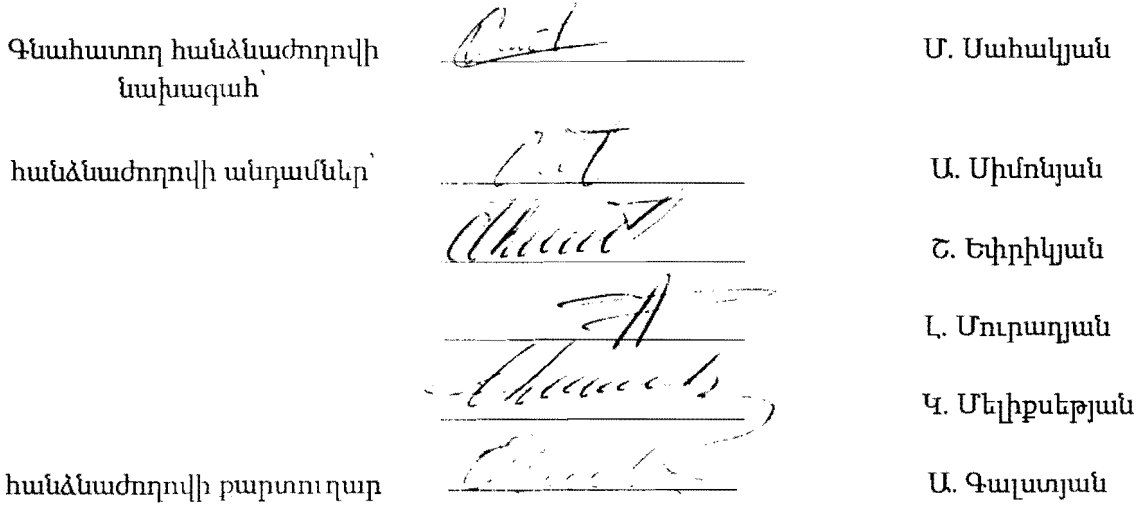 Գնահատող հանձնաժողովի Մ. Սահակյան
նախագահ՝
հանձնաժողովի անդամներ՝ Ա. Սիմոնյան
Շ. Եփրիկյան
Լ. Մուրադյան
Կ. Մելիքսեթյան
հանձնաժողովի քարտուղար Ա. Գալստյան